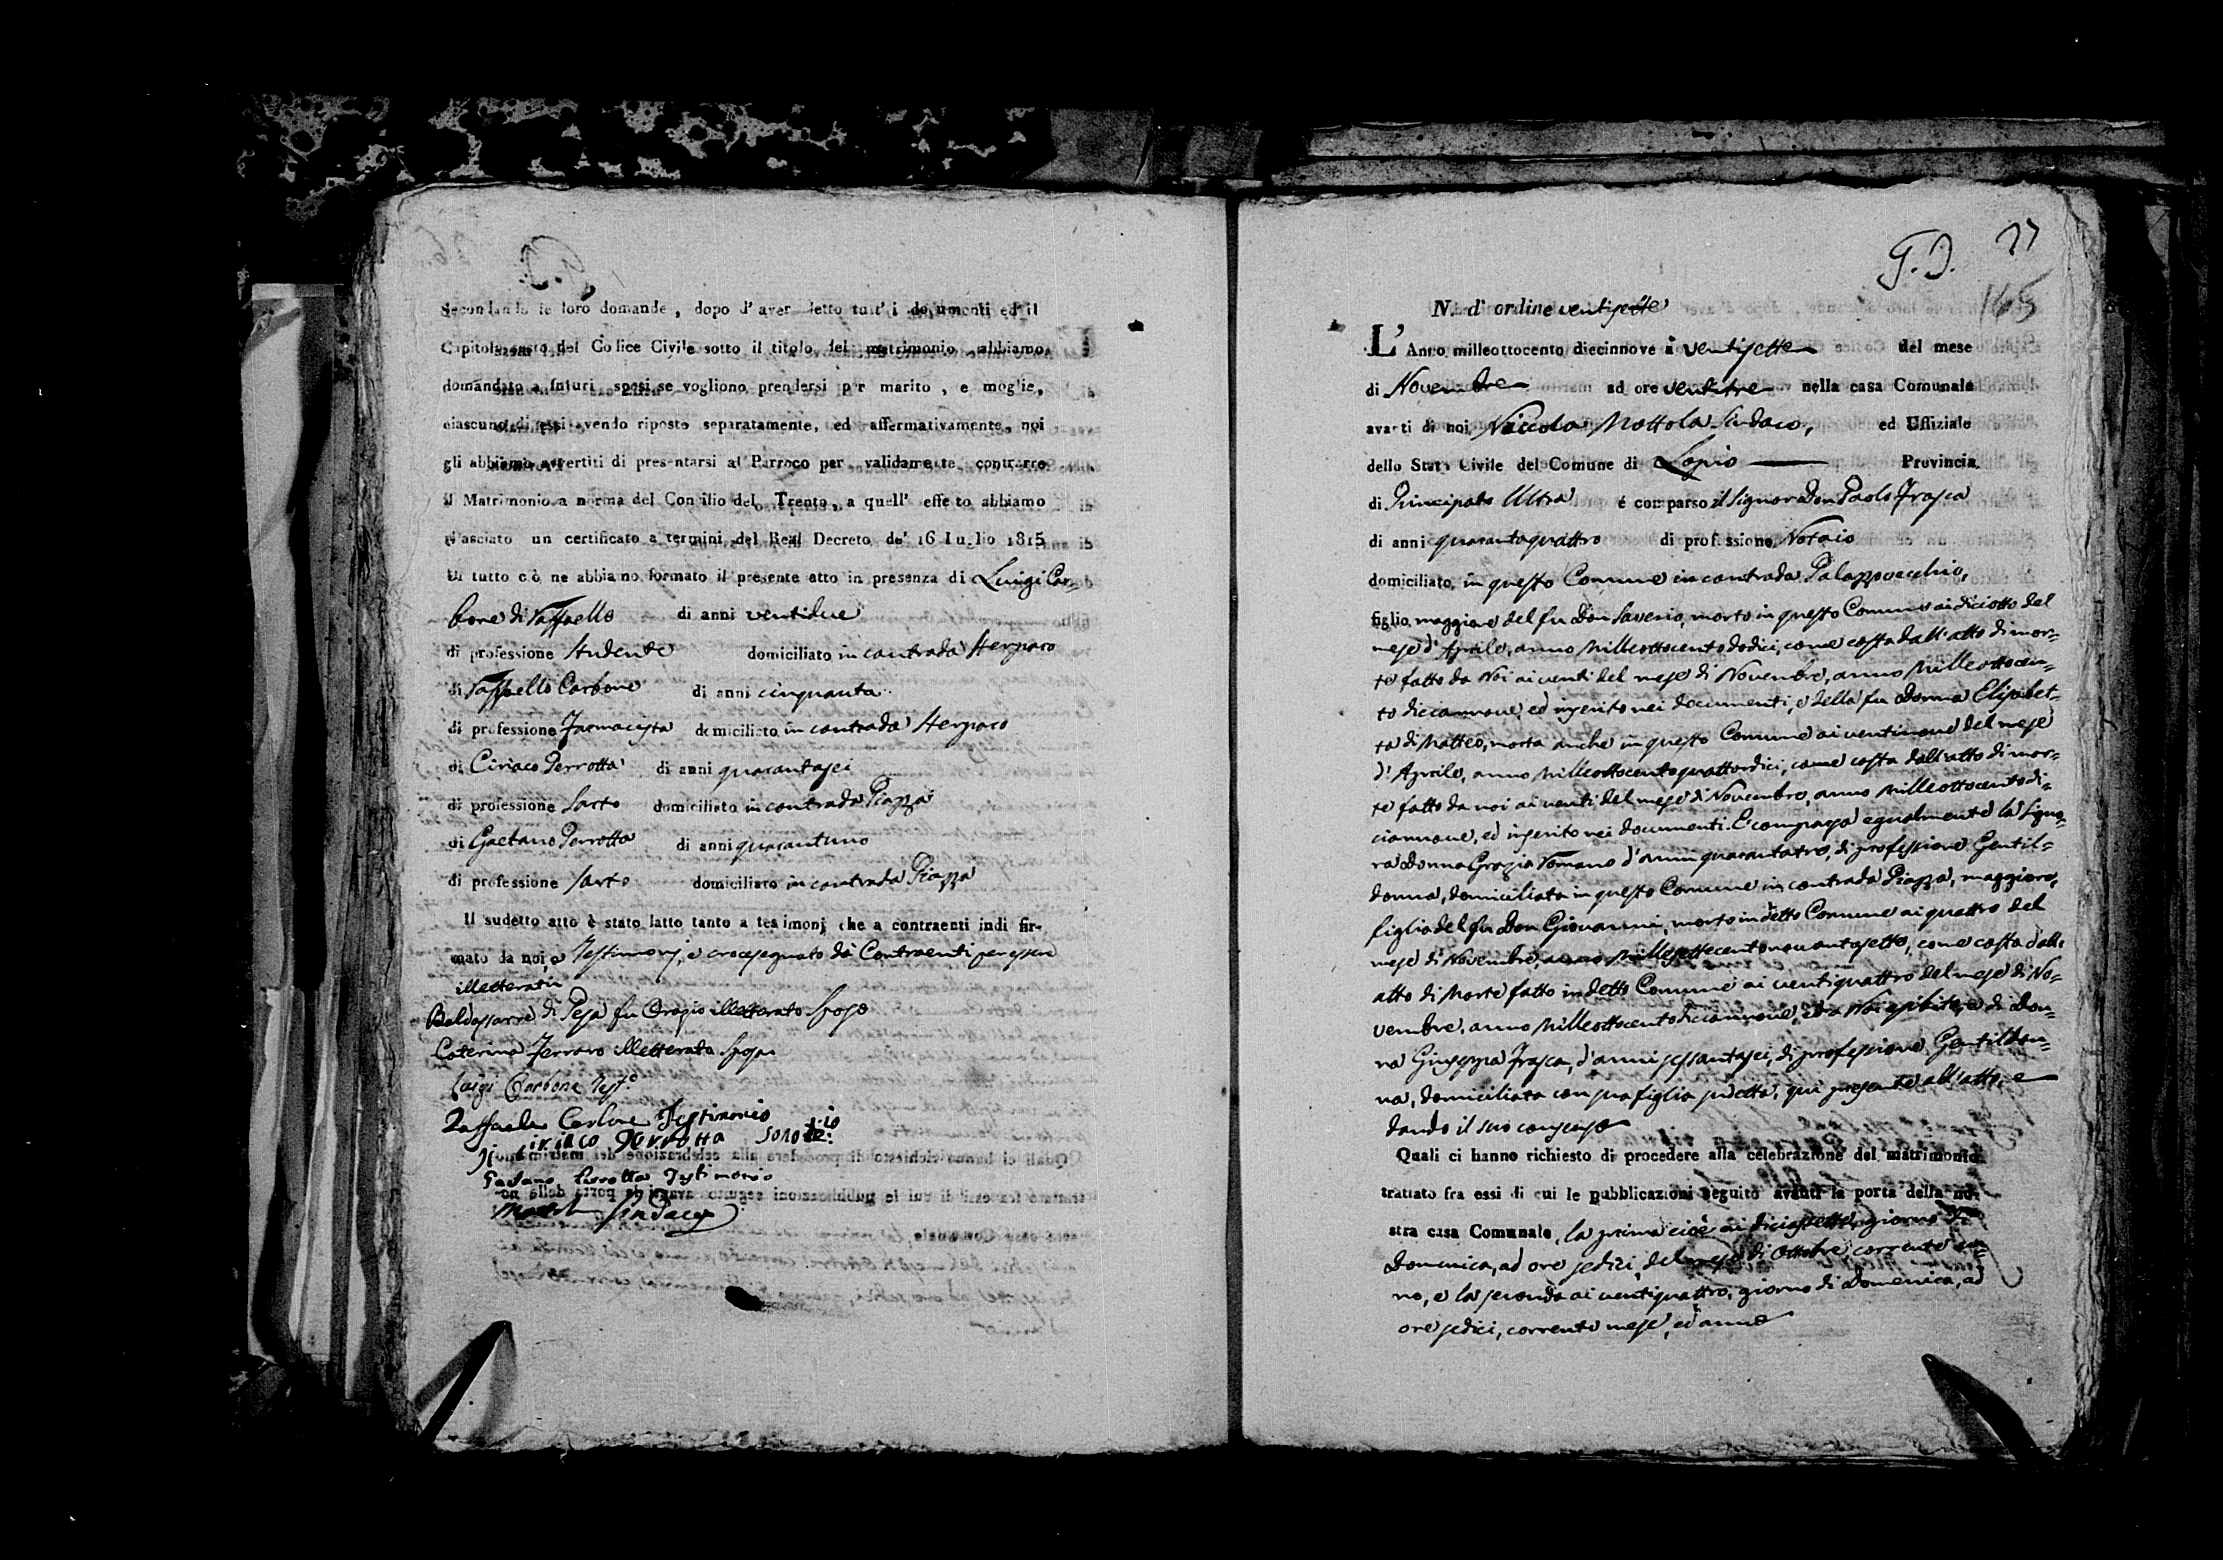 Secondando le loro domande, dopo d'aver letto tutt'i documenti ed il
Capitolo sesto del Codice Civile sotto il titolo del matrimonio abbiamo
domandato a' futuri sposi se vogliono prendersi per marito, e moglie,
ciascuno di essi avendo riposto separatamente, ed affermativamente, noi
gli abbiamo avvertiti di presentarsi al Parroco per validamente contrarre
il Matrimonio a norma del Concilio del Trento, a quell' effetto abbiamo
rilasciato un certificato a termini del Real Decreto de' 16 Iuglio 1815
Di tutto ciò ne abbiamo formato il presente atto in presenza di Luigi Car-
bone di Raffaello di anni ventidue
di professione Studente domiciliato in contrada
di Raffaello Carbone di anni cinquanta
di professione Farmacista domiciliato in contrada
di Ciriaco Perrotta di anni quarantasei
di professione Sarto domiciliato in contrada Piazza
di Gaetano Perrotta di anni quarantuno
di professione Sarto domiciliato in contrada Piazza
Il sudetto atto è stato latto tanto a testimonj che a contraenti indi fir-
mato da noi, e Testimonj, e crocesegnato dà Contraenti per essere
illetterati
Baldassarre di Pesa fu Orazio illetterato Sposo
Caterina Ferraro illetterata Sposa
Luigi Carbone Test.o
Raffaele Carbone Testimonio
Ciriaco Perrotta sono
Gaetano Perrotta Testimonio
Sindaco
G. D. 27
165
N. d' ordine ventisette
L' Anno milleottocento diecinnove à ventisette del mese
di Novembre ad ore ventitre nella casa Comunale
avanti di noi Niccola Mottola Sindaco, ed Uffiziale
dello Stato Civile del Comune di Lapio Provincia
di Principato Ultra é comparso il Signor Don Paolo Frasca
di anni quarantaquattro di professione Notaio
domiciliato in questo Comune in contrada Palazzovecchio,
figlio maggiore del fu Don Saverio, morto in questo Comune ai diciotto del
mese d'Aprile, anno Milleottocentododici, come costa dall'atto di mor=
te fatto da Noi ai venti del mese di Novembre, anno Milleottocen=
to diecinnove, ed inserito nei documenti, e della fu Donna Elisabet=
ta di Matteo, morta anche in questo Comune ai ventinove del mese
d'Aprile, anno Milleottocentoquattordici, come costa dall'atto di mor=
te fatto da noi ai venti del mese di Novembre, anno Milleottocentodi=
ciannove, ed inserito nei documenti. E comparsa egualmente la Signo=
ra Donna Grazia Romano d'anni quarantatre, di professione Gentil=
donna, domiciliata in questo Comune in contrada Piazza, maggiore,
figlia del fu Don Giovanni, morto in detto Comune ai quattro del
mese di Novembre, anno Millesettecentonovantasette, come costa dall'
atto di Morte fatto in detto Comune ai ventiquattro del mese di No=
vembre, anno Milleottocentodiciannove, ed a Noi esibito, e di Don=
na Giuseppa Frasca, d'anni sessantasei, di professione Gentildon=
na, domiciliata con sua figlia sudetta, qui presente all'atto, e
dando il suo consenso
Quali ci hanno richiesto di procedere alla celebrazione del matrimonio
trattato fra essi di cui le pubblicazioni seguito avanti la porta della no-
stra casa Comunale, la prima cioè ai diciassette, giorno di
Domenica, ad ore sedici, del mese di Ottobre corrente an=
no, e la seconda ai ventiquattro, giorno di Domenica, ad
ore sedici, corrente mese, ed anno